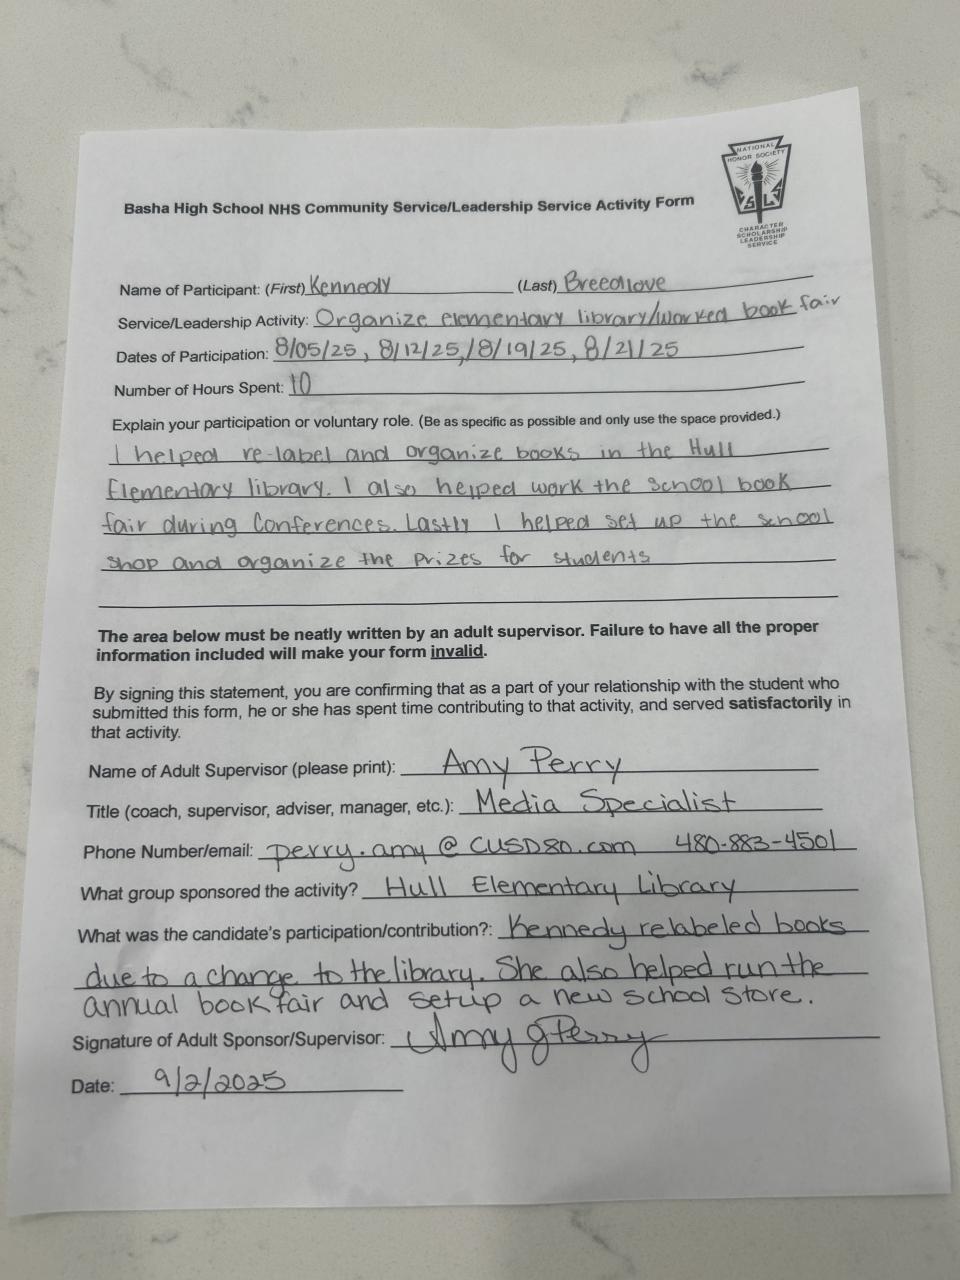 NATIONAL
HONOR SOCIETY
S L
CHARACTER
SCHOLARSHIP
LEADERSHIP
SERVICE
Basha High School NHS Community Service/Leadership Service Activity Form
Name of Participant: (First) Kennedy (Last) Breedlove
Service/Leadership Activity: Organize elementary library/worked book fair
Dates of Participation: 8/05/25, 8/12/25, 8/19/25, 8/21/25
Number of Hours Spent: 10
Explain your participation or voluntary role. (Be as specific as possible and only use the space provided.)
I helped re-label and organize books in the Hull
Elementary library. I also helped work the school book
fair during Conferences. Lastly I helped set up the school
shop and organize the prizes for students
The area below must be neatly written by an adult supervisor. Failure to have all the proper
information included will make your form invalid.
By signing this statement, you are confirming that as a part of your relationship with the student who
submitted this form, he or she has spent time contributing to that activity, and served satisfactorily in
that activity.
Name of Adult Supervisor (please print): Amy Perry
Title (coach, supervisor, adviser, manager, etc.): Media Specialist
Phone Number/email: perry.amy@CUSD80.com 480-883-4501
What group sponsored the activity? Hull Elementary Library
What was the candidate's participation/contribution?: Kennedy relabeled books
due to a change to the library. She also helped run the
annual book fair and setup a new school store.
Signature of Adult Sponsor/Supervisor: Amy J Perry
Date: 9/2/2025